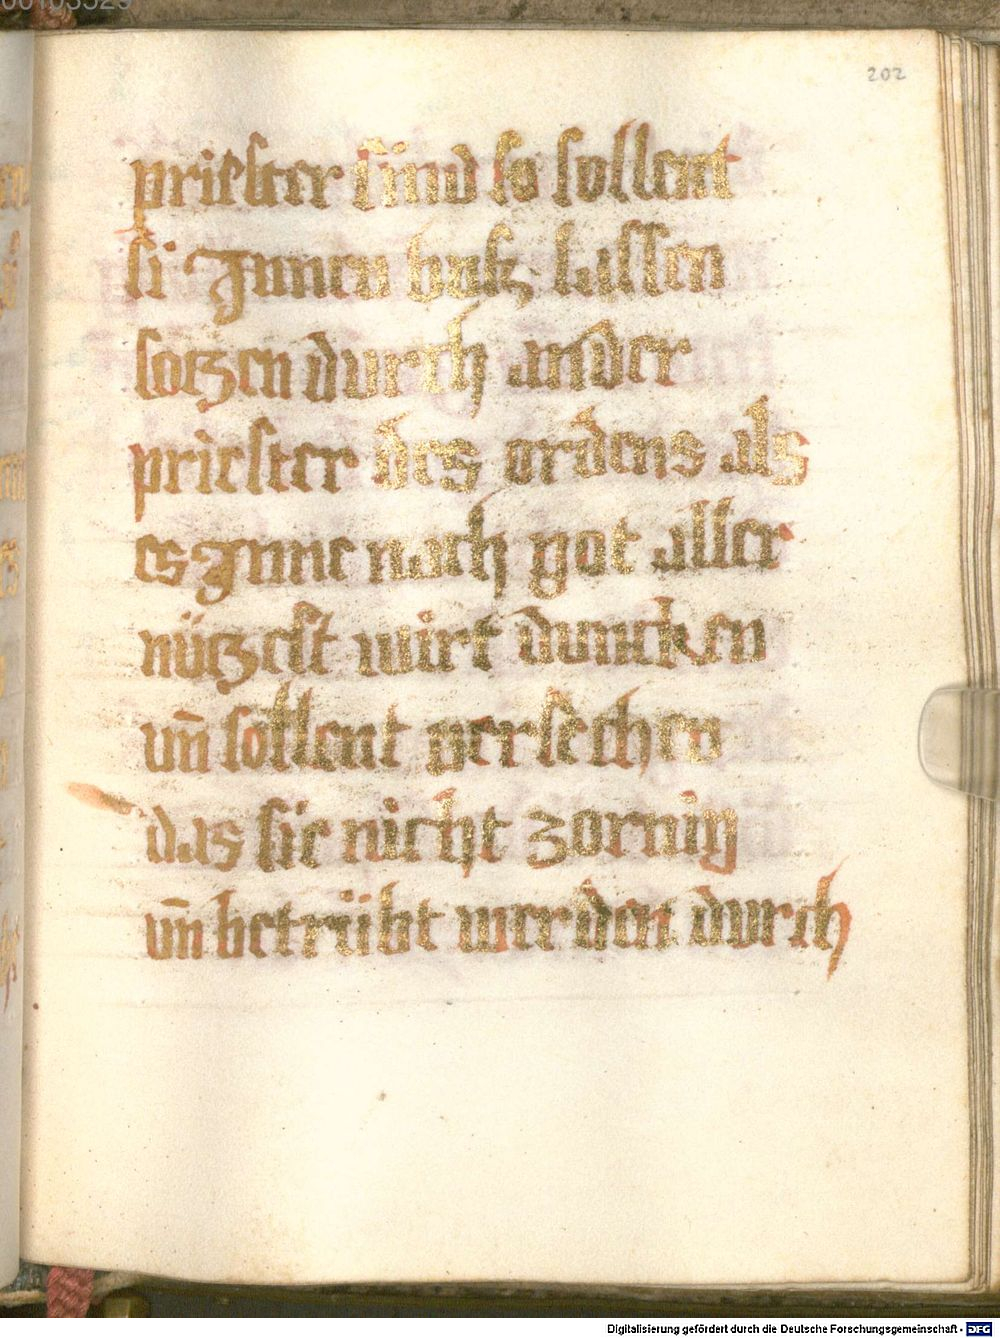 00103529
202
priester sind so sollent
si Jnnen buß lassen
sotzen durch ander
priester des ordens als
es Jnne nach got aller
nützest wirt duncken
un̄ sollent versechen
das sie nicht zornig
un̄ betrübt werden durch
Digitalisierung gefördert durch die Deutsche Forschungsgemeinschaft - DFG